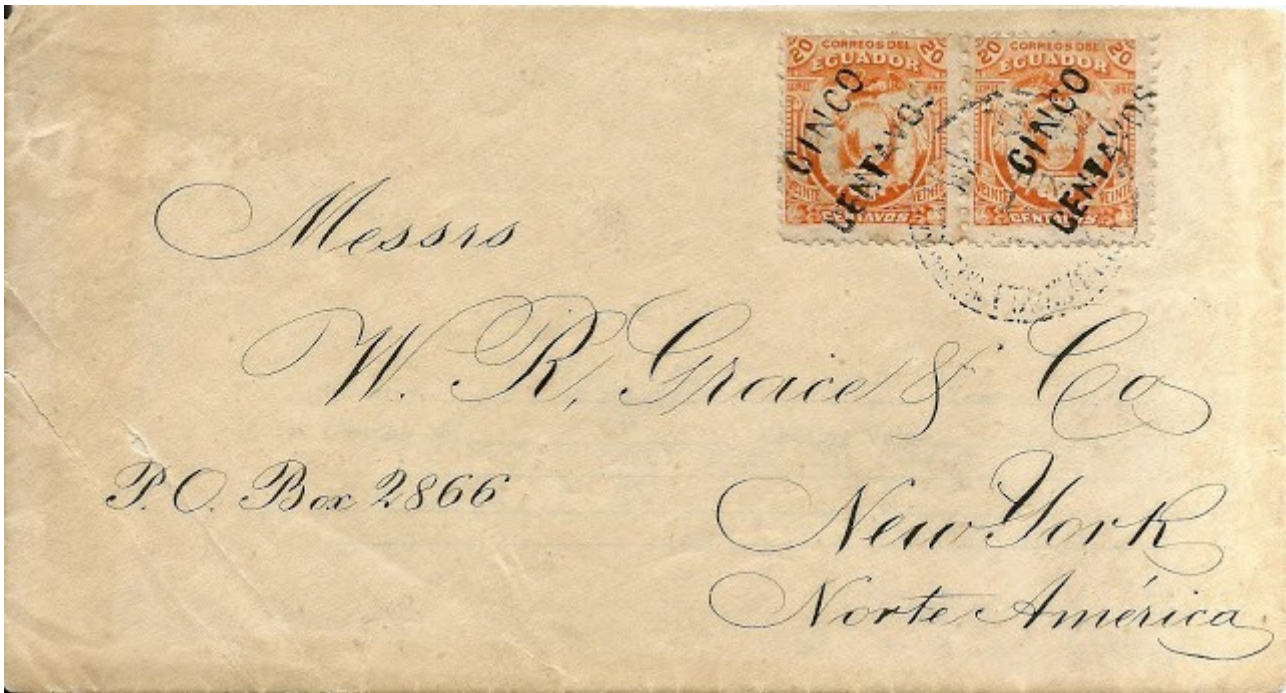 20 CORREOS DEL 20
ECUADOR
CINCO
CENTAVOS
VEINTE VEINTE
CENTAVOS
20 CORREOS DEL 20
ECUADOR
CINCO
CENTAVOS
VEINTE VEINTE
CENTAVOS
Messrs
W. R, Grace & Co
P. O. Box 2866
New York
Norte América